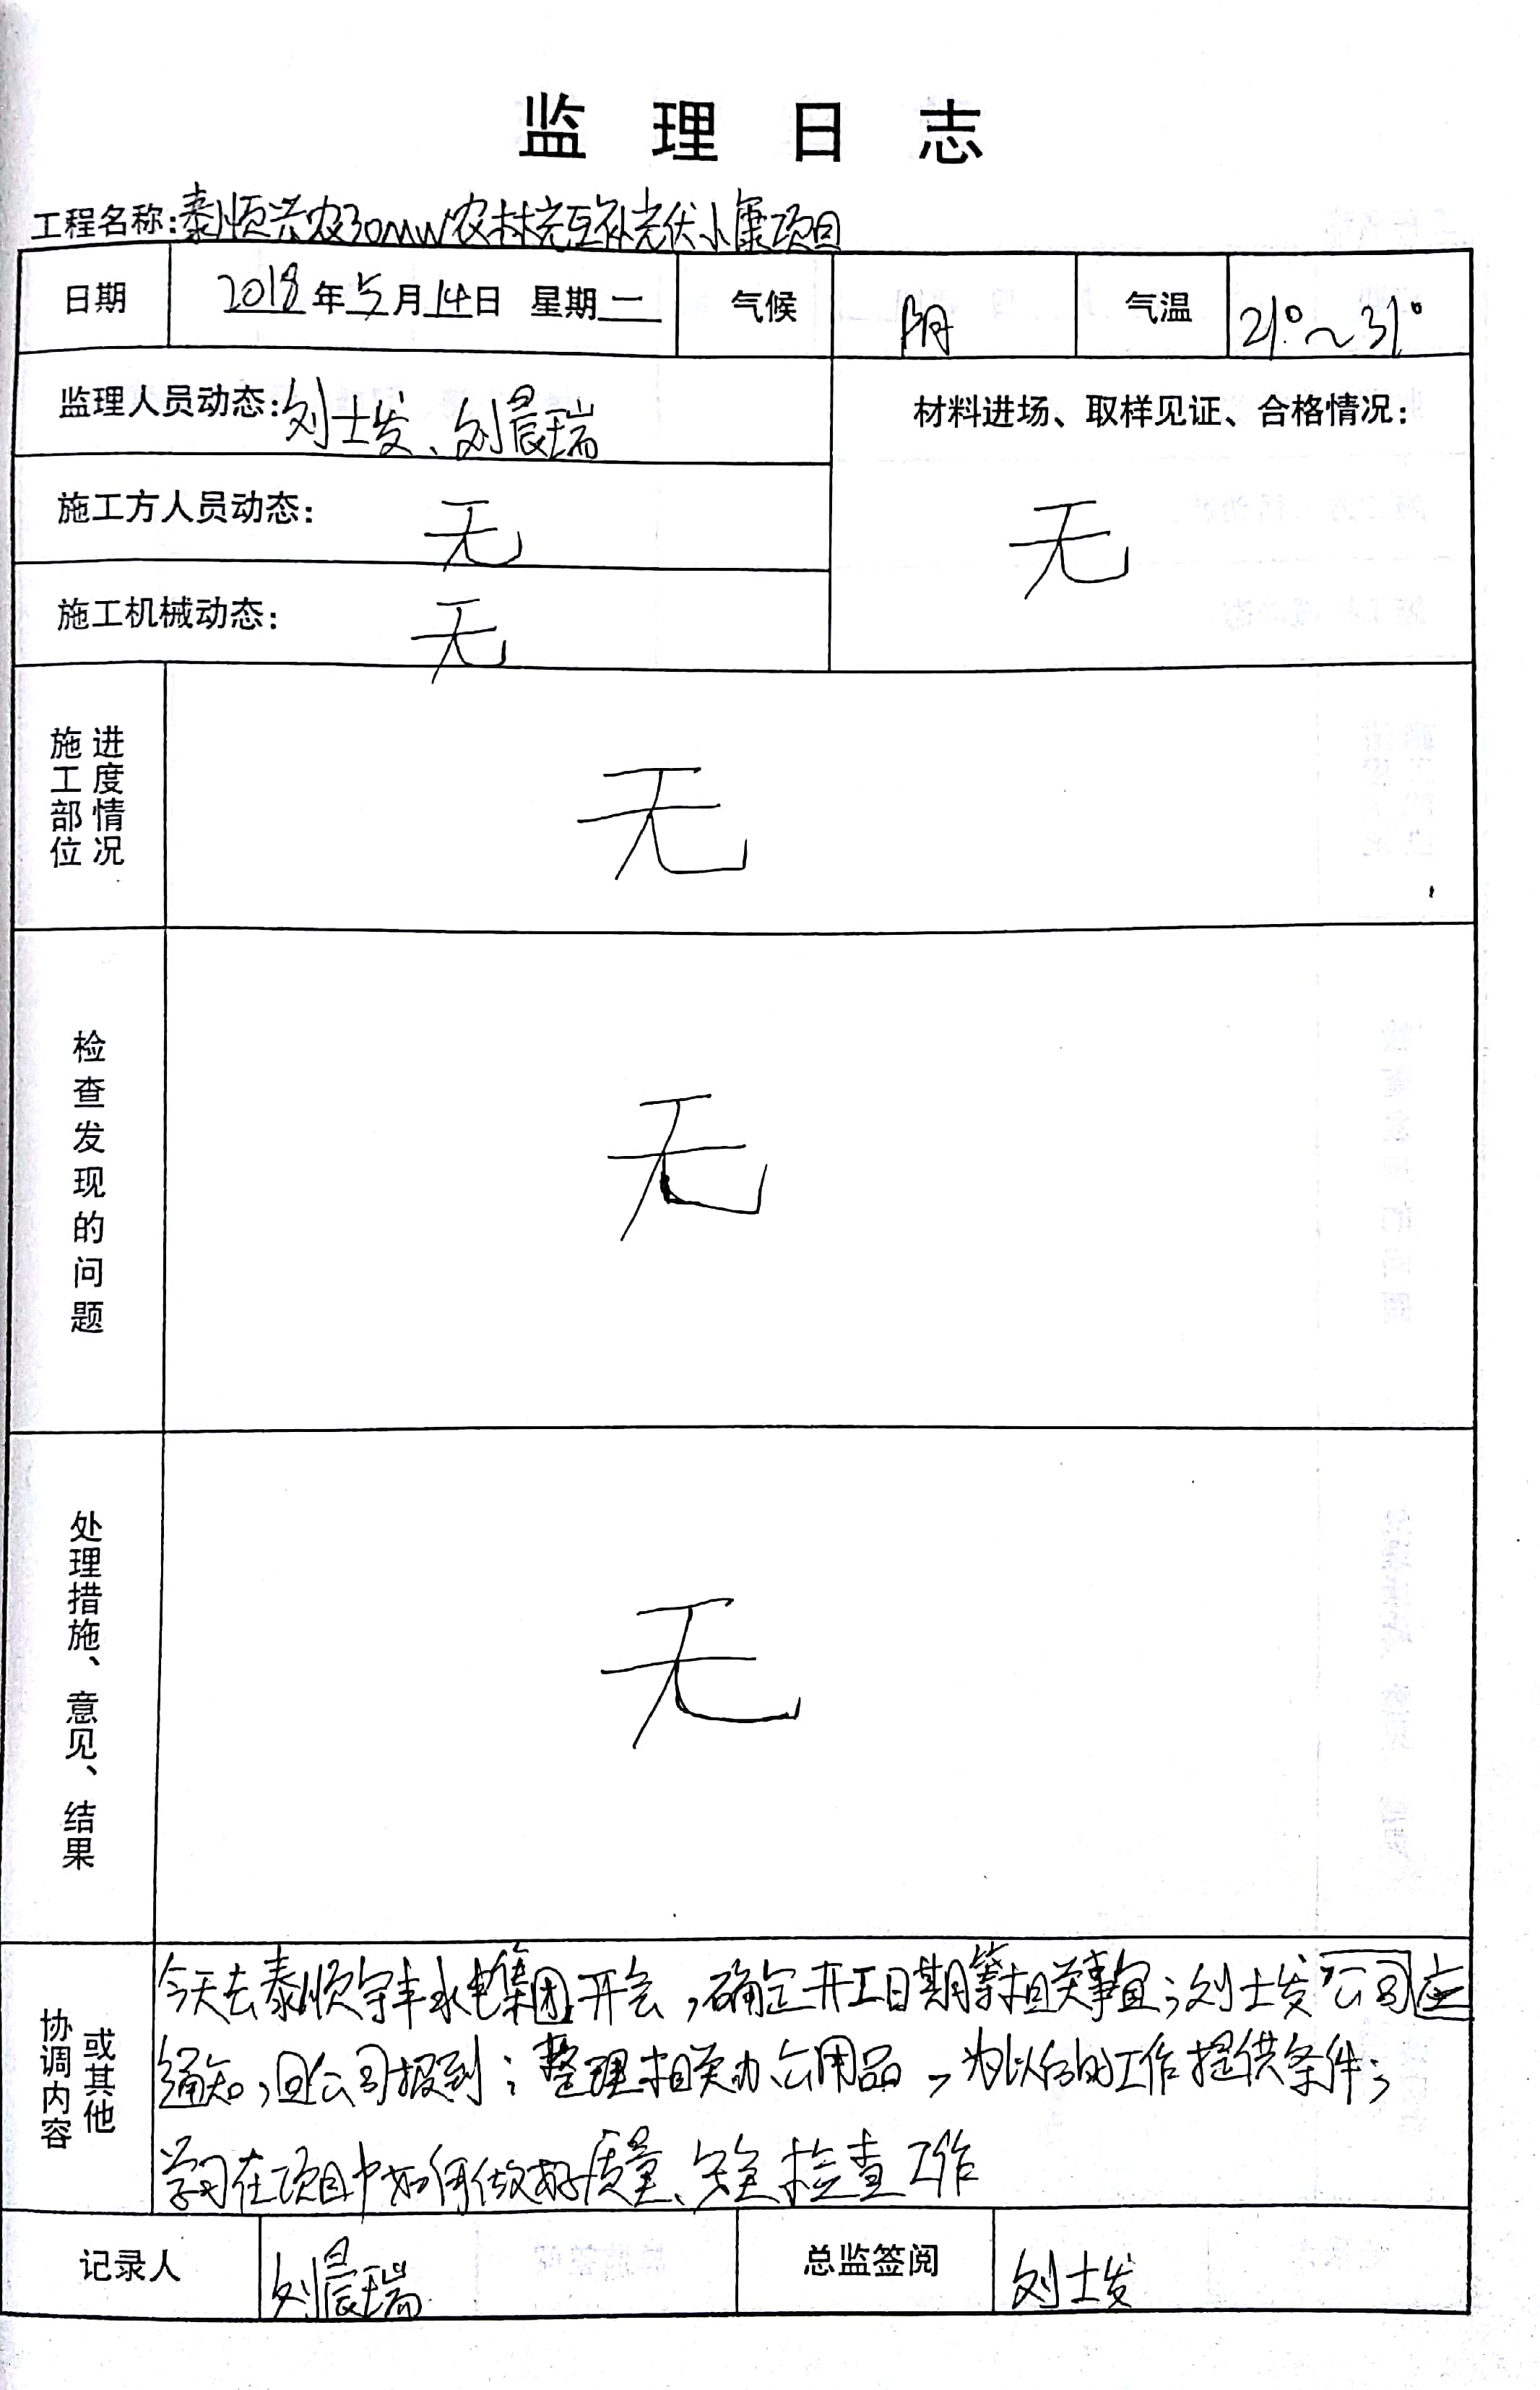 监理日志
工程名称:泰顺兴农30MW农林光互补光伏小康项目
日期 2018年5月14日 星期一 气候 阴 气温 21°~31°
监理人员动态:刘士发、刘晨瑞 材料进场、取样见证、合格情况:
施工方人员动态: 无 无
施工机械动态: 无
施工部位 进度情况 无
检查发现的问题 无
处理措施、意见、结果 无
协调内容 或其他
今天去泰顺守丰水电集团开会,确定开工日期等相关事宜;刘士发公司应
通知,回公司报到;整理相关办公用品,为以后的工作提供条件;
学习在项目中如何做好质量、安全检查工作
记录人 刘晨瑞 总监签阅 刘士发